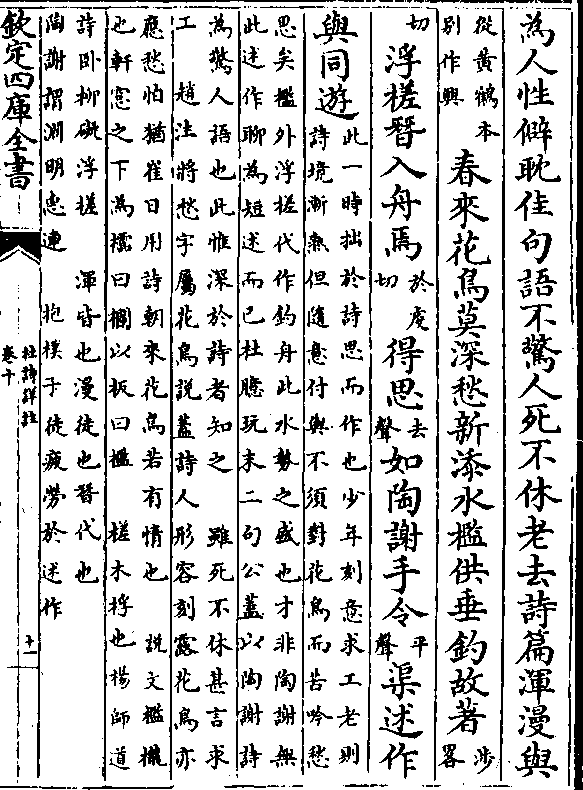 為人性僻耽佳句語不驚人死不休老去詩篇渾漫與
從黃鶴本
别作興
春來花鳥莫深愁新添水檻供垂釣故著涉畧
切浮槎替入舟焉於虔切得思去聲如陶謝手令平聲渠述作
與同遊
此一時拙於詩思而作也少年刻意求工老則
詩境漸熟但隨意付與不須對花鳥而苦吟愁
思矣檻外浮槎代作釣舟此水勢之盛也才非陶謝無
此述作聊為短述而已杜臆玩末二句公蓋以陶謝詩
為驚人語也此惟深於詩者知之 雖死不休甚言求
工 趙注將愁字屬花鳥說蓋詩人形容刻露花鳥亦
應愁怕猶崔日用詩朝來花鳥若有情也 說文檻櫳
也軒窓之下為櫺曰欄以板曰檻 槎木桴也楊師道
詩卧柳礙浮槎 渾皆也漫徒也替代也
陶謝謂淵明惠連 抱樸子徒疲勞於述作
欽定四庫全書
杜詩詳註
卷十
十一